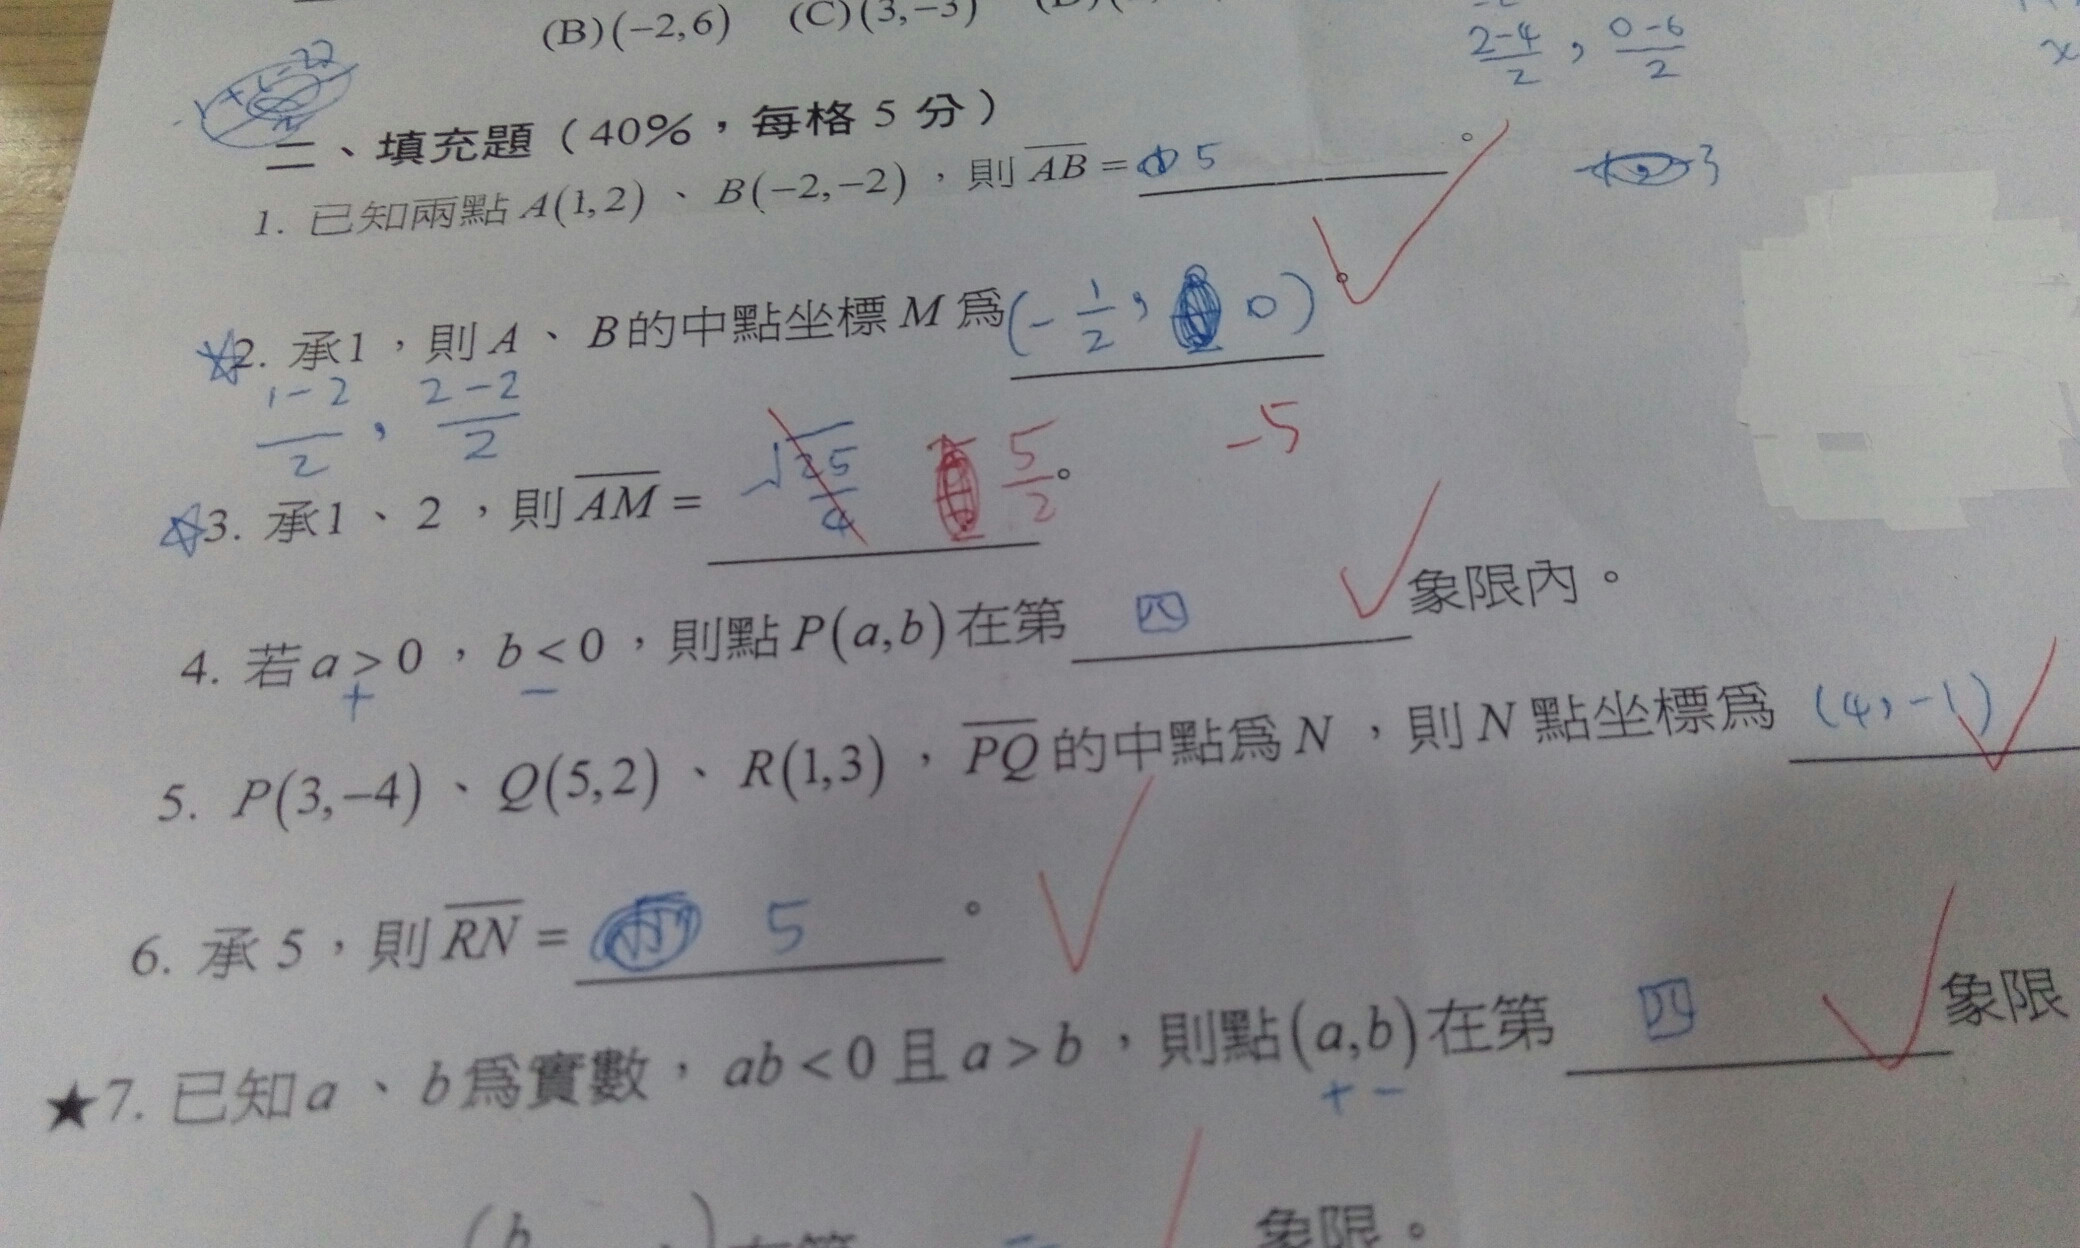 (B)(−2,6) (C)(3,−3)
2-4/2 , 0-6/2
二、填充題（40%，每格 5 分）
1. 已知兩點 A(1,2)、B(−2,−2)，則 AB = 5 。
★2. 承1，則 A、B的中點坐標 M 為 (-1/2, 0) 。
1-2/2 , 2-2/2
-5
☆3. 承1、2，則 AM = √25/4 5/2 。
4. 若 a > 0，b < 0，則點 P(a,b) 在第 四 象限內。
+ −
5. P(3,−4)、Q(5,2)、R(1,3)，PQ 的中點為 N，則 N 點坐標為 (4,-1)
6. 承 5，則 RN = 5 。
★7. 已知 a、b 為實數，ab < 0 且 a > b，則點 (a,b) 在第 四 象限
+ −
象限。